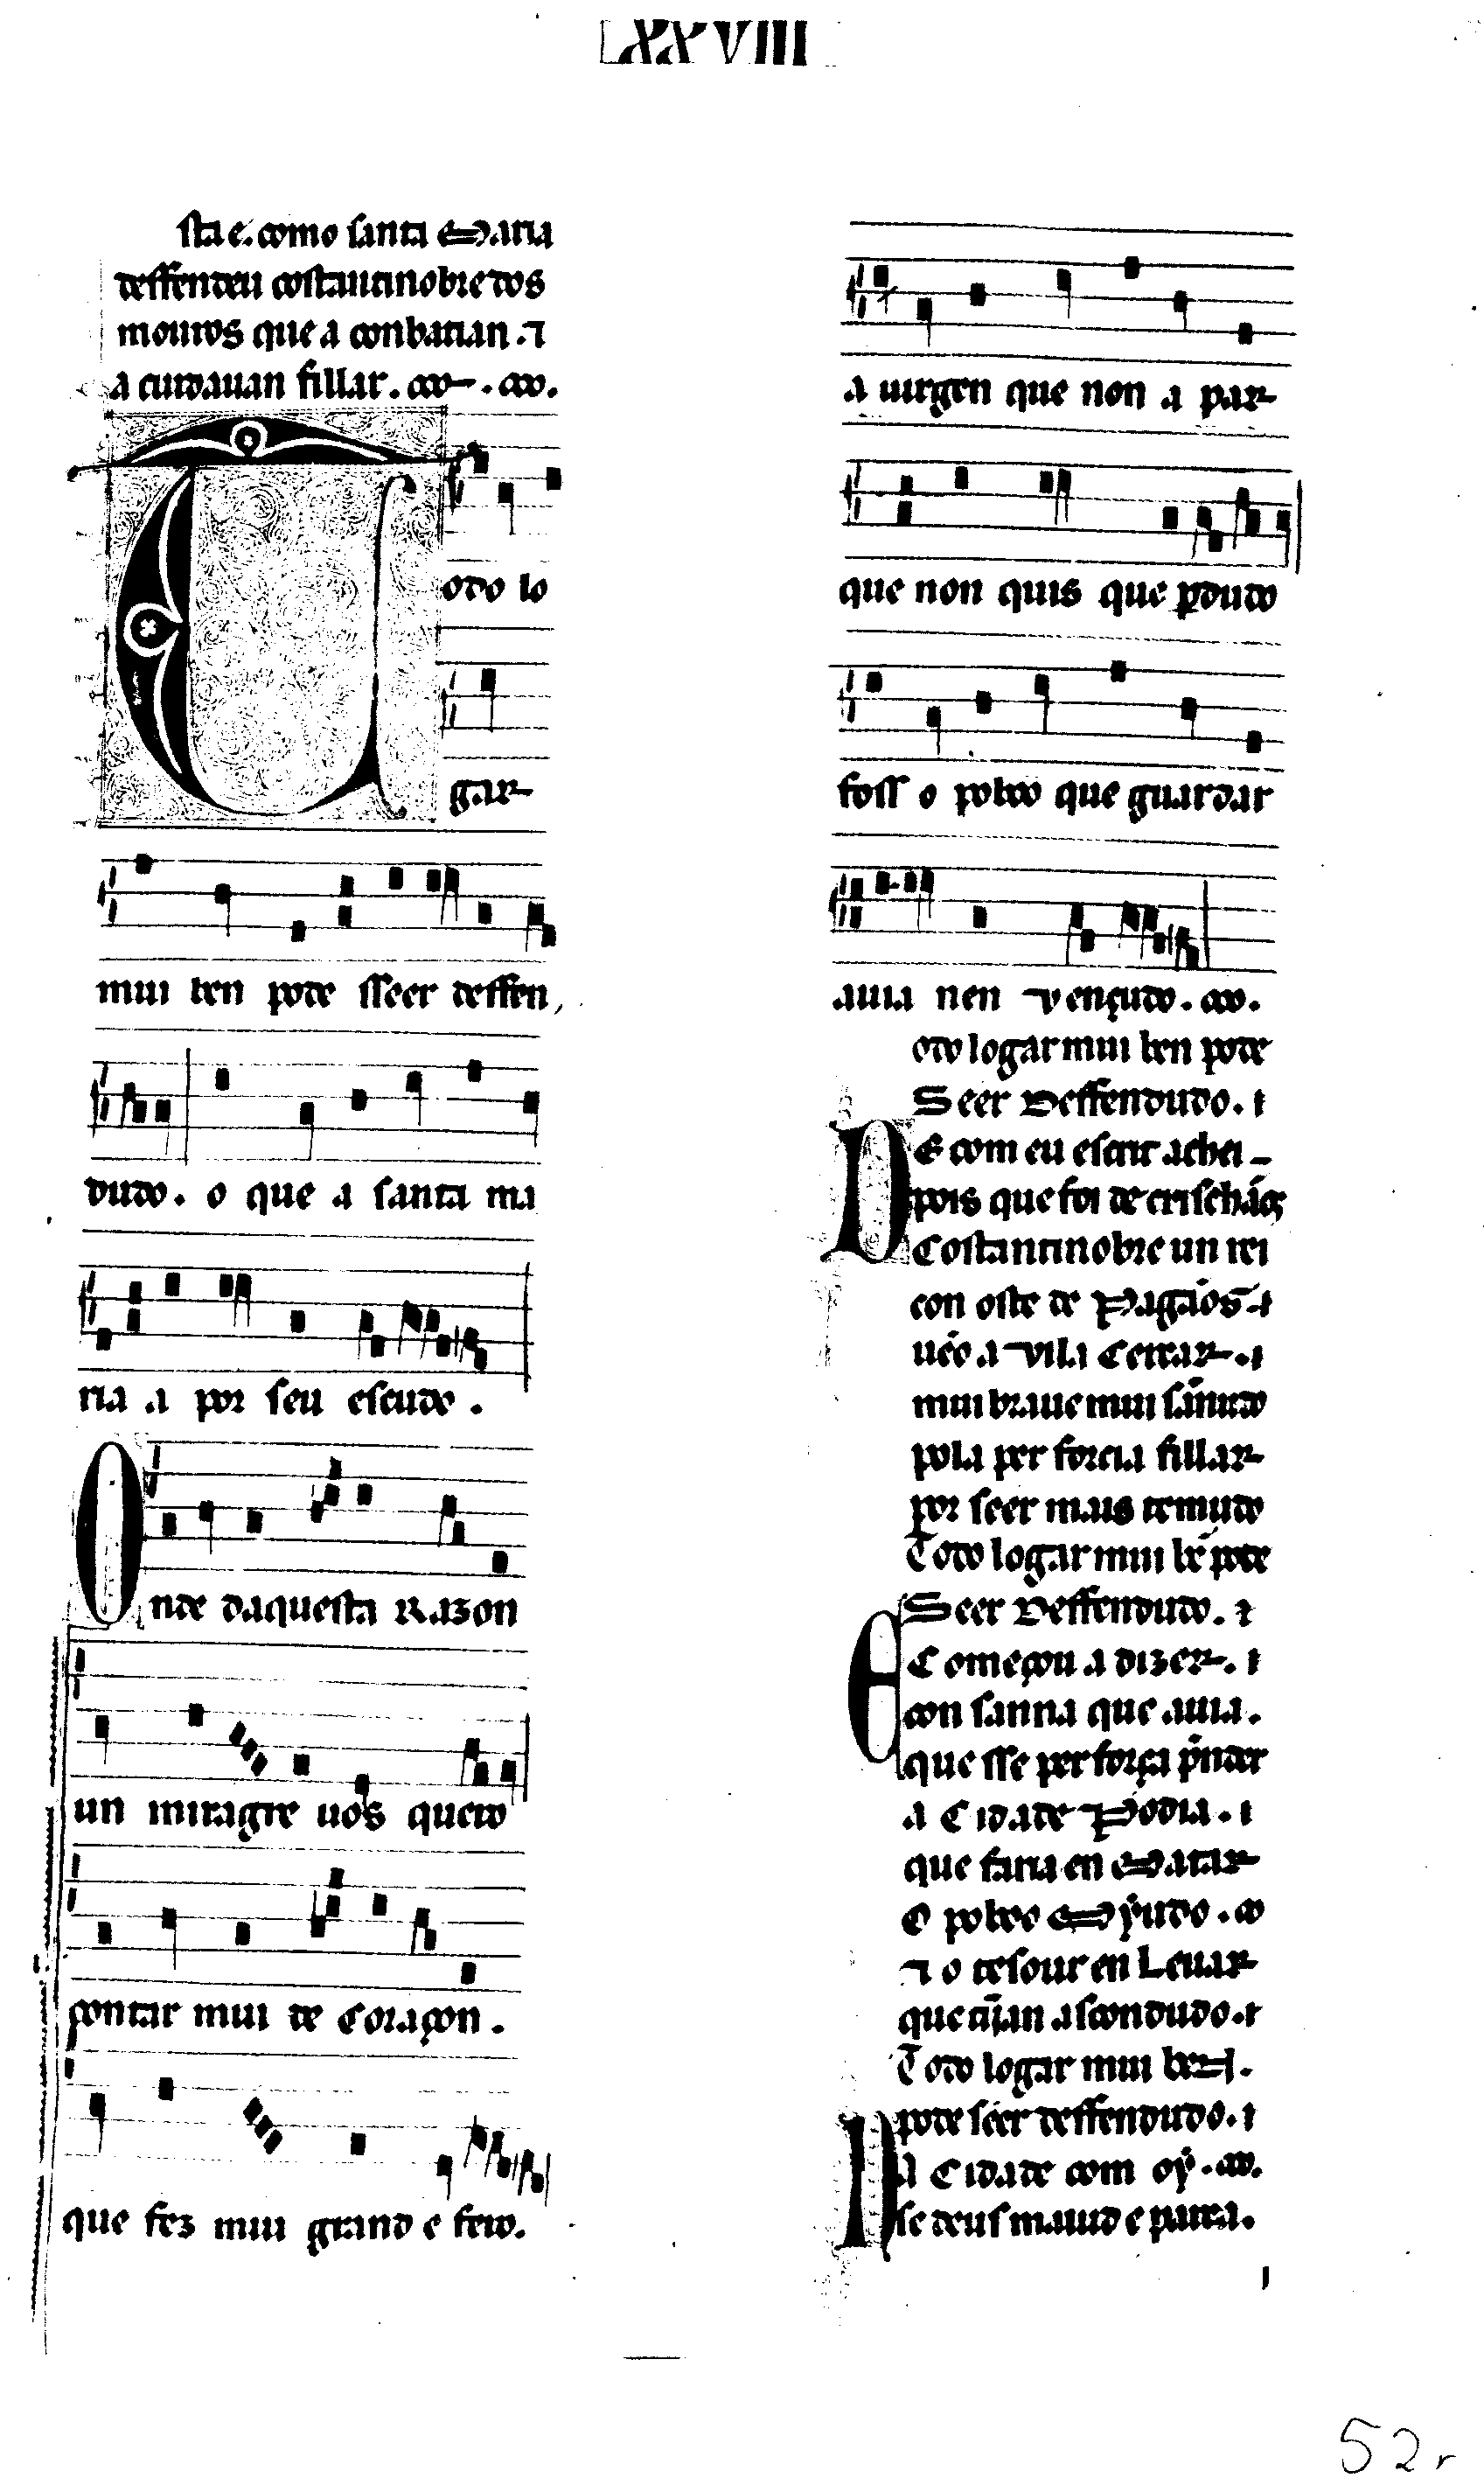 LXXVIII
sta e. como santa Maria
deffendeu costantinobre dos
mouros que a conbatian. ⁊
a cuidauan fillar.
Todo lo
gar
mui ben pode sseer deffen,
dudo. o que a santa ma
ria a por seu escudo.
Onde daquesta Razon
un miragre uos quero
contar mui de Coraçon.
que fez mui grand e fero.
a uirgen que non a par
que non quis que ꝑdudo
foss o poboo que guardar
auia nen vençudo.
odo logar mui ben pode
Seer Deffendudo.
De com eu escrit achei
pois que foi de crischãos
Costantinobre un rei
con oste de Pagãos
uẽo a Vila Cercar.
mui braue mui sannudo
pola per forcia fillar
por seer mais temudo
Todo logar mui bẽ pode
Seer Deffendudo.
E Começou a dizer.
con sanna que auia.
que sse per força p̃nder
a Cidade Podia.
que faria en Matar
O poboo Myudo.
⁊ o tesour en Leuar
que tiĩan ascondudo.
Todo logar mui ben.
pode seer deffendudo.
Na Cidade com oý.
se deus maiud e parta.
52r